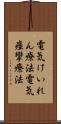 電気けいれ
ん療法電気
痙攣療法